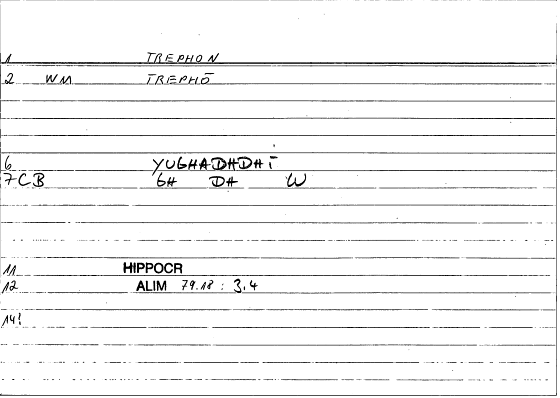 1 TREPHON
2 WM TREPHŌ
6 YUGHADHDHĪ
7 CB GH DH W
11 HIPPOCR
12 ALIM 79.18 : 3.4
14!